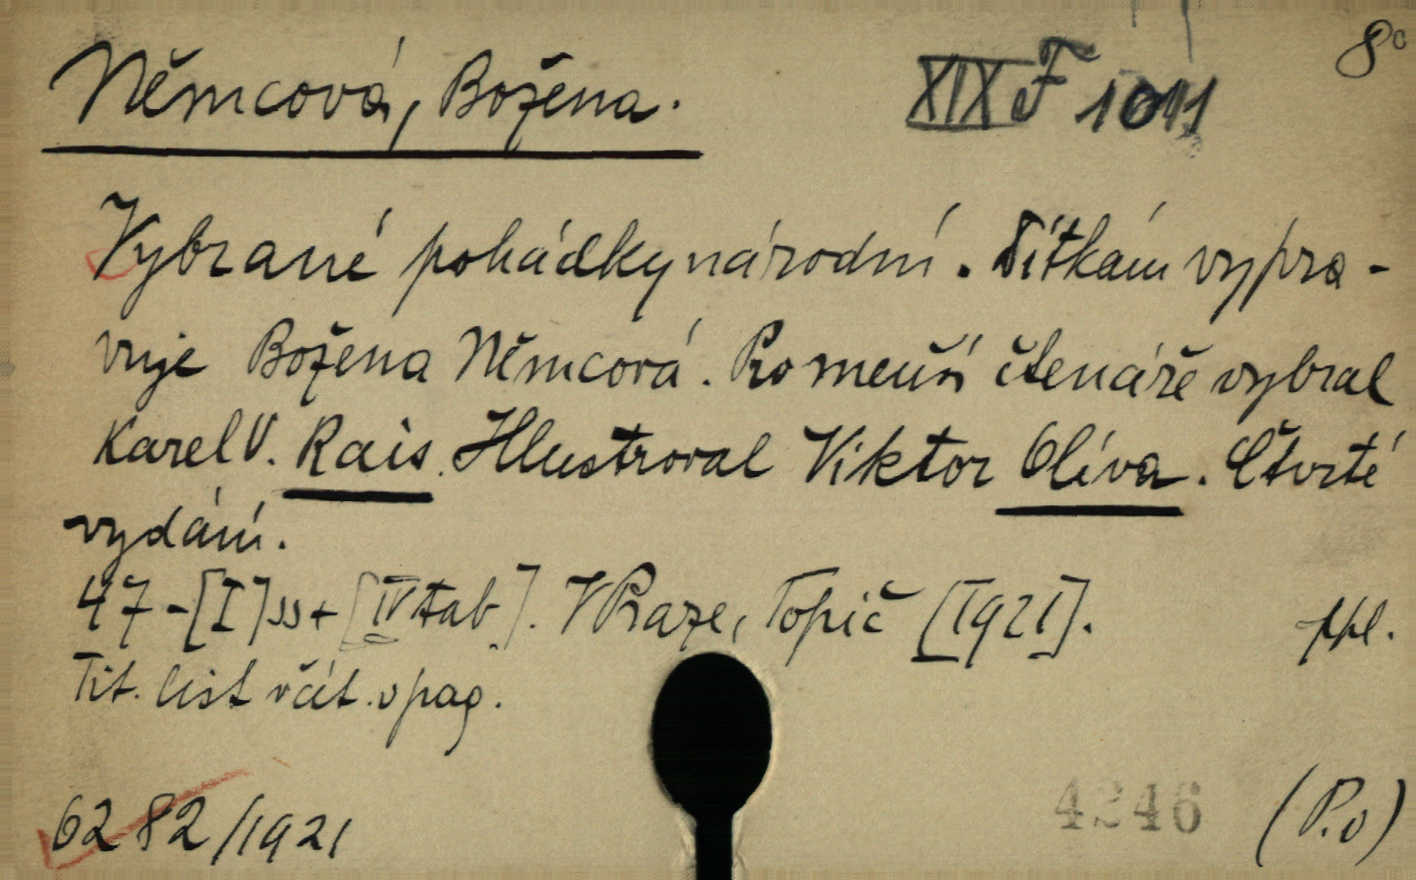 8°
Němcová, Božena.
XIX F 1011
Vybrané pohádky národní. Dítkám vypra-
vuje Božena Němcová. Pro menší čtenáře vybral
Karel V. Rais. Illustroval Viktor Oliva. Čtvrté
vydání.
47-[I]ss+[IV tab]. V Praze, Topič [1921].
ppl.
Tit. list včít. v pag.
6282/1921
4246
(P.v)